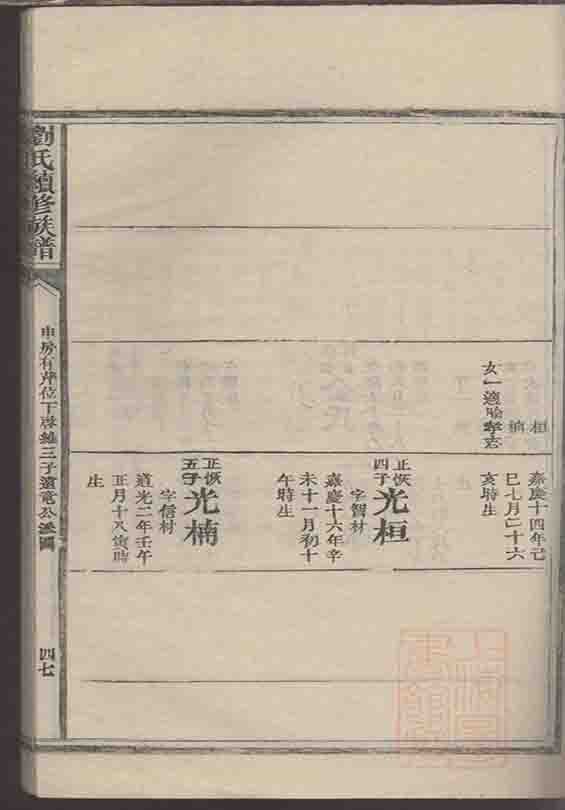 桓
楠
女一適喻孝志
嘉慶十四年己
巳七月二十六
亥時生
正恢
四子
光桓
字智材
嘉慶十六年辛
未十一月初十
午時生
正恢
五子
光楠
字信材
道光二年壬午
正月十八寅時
生
劉氏續修族譜
申房有芹位下
三子
公派圖
四七